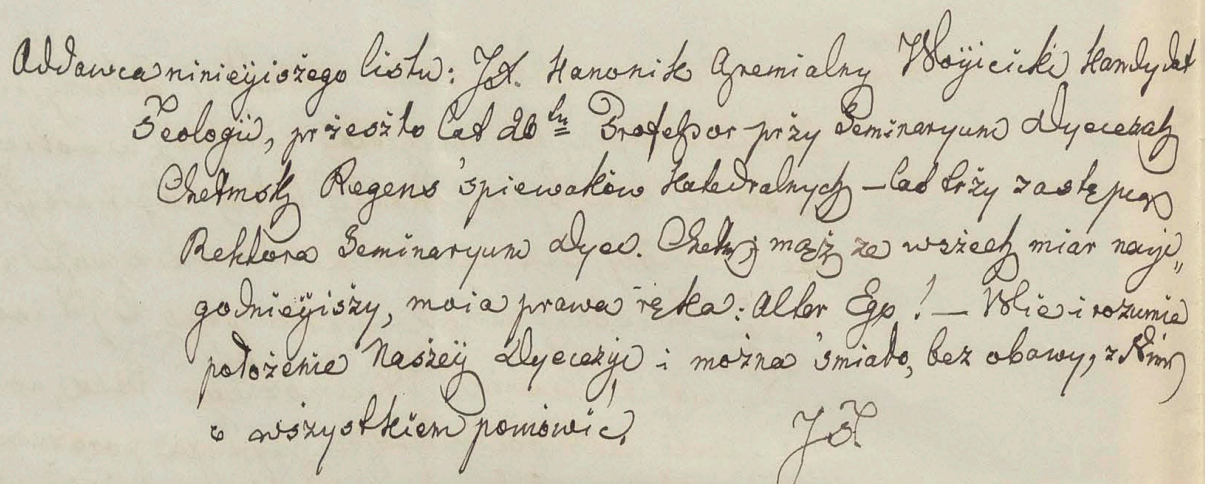 Oddawca ninieÿiszego listu: JX. Kanonik Gremialny Woÿicicki Kandydat
Teologii, przeszło lat 20tu Professor przy Seminaryum Dyecezalh
Chełmsk Regens śpiewaków Katedralnych – lat trzy zastępca
Rektora Seminaryum Dyec. Chełm: mąż ze wszech miar nayi„
godnieÿiszy, moia prawa ręka: Alter Ego! – Wie i rozumie
położenie Naszeÿ Dyecezyi i można śmiało, bez obawy, z Nim
o wszystkiem pomówić.
JX.